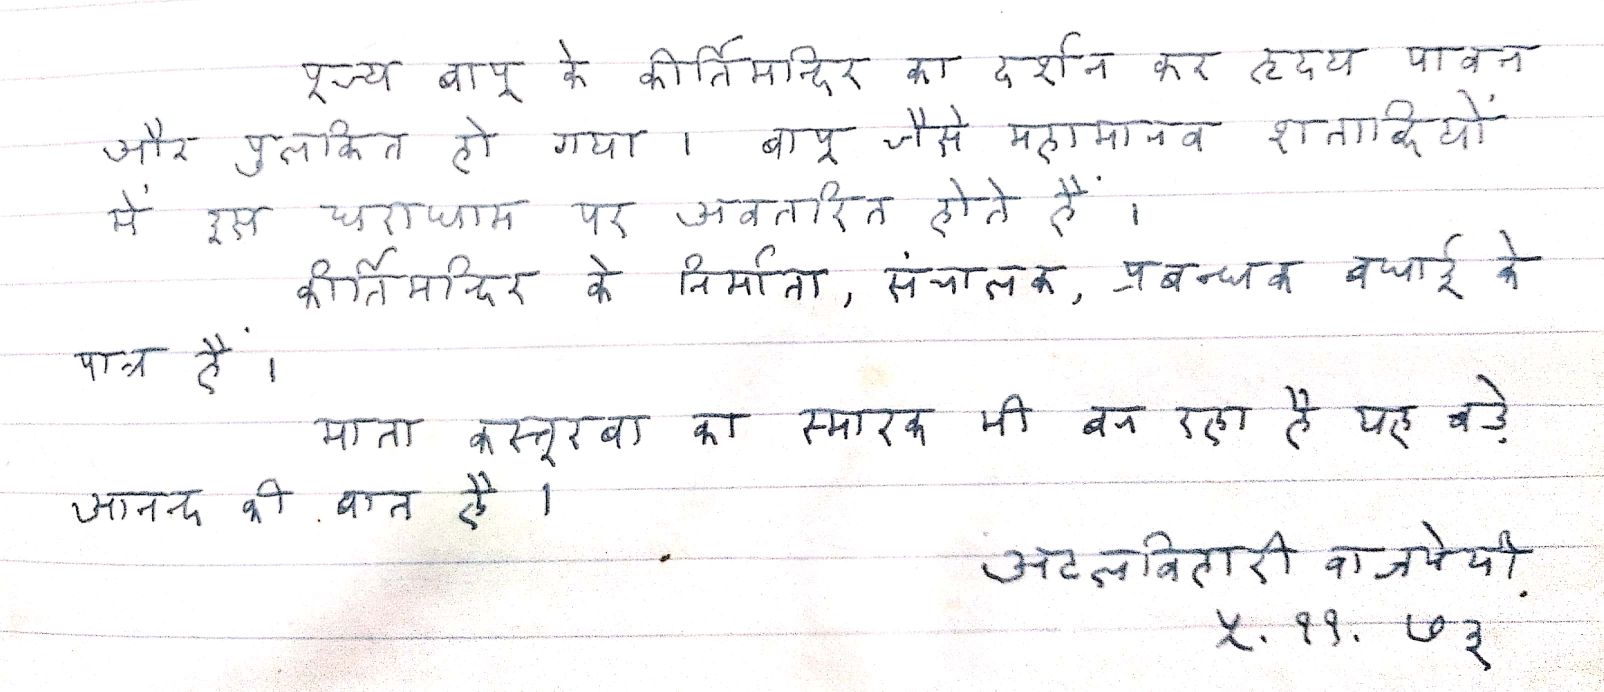 पूज्य बापू के कीर्तिमन्दिर का दर्शन कर हृदय पावन
और पुलकित हो गया । बापू जैसे महामानव शताब्दियों
में इस धराधाम पर अवतरित होते हैं ।
कीर्तिमन्दिर के निर्माता, संचालक, प्रबन्धक बधाई के
पात्र हैं ।
माता कस्तूरबा का स्मारक भी बन रहा है यह बड़े
आनन्द की बात है ।
अटलबिहारी वाजपेयी
५. ११. ७३